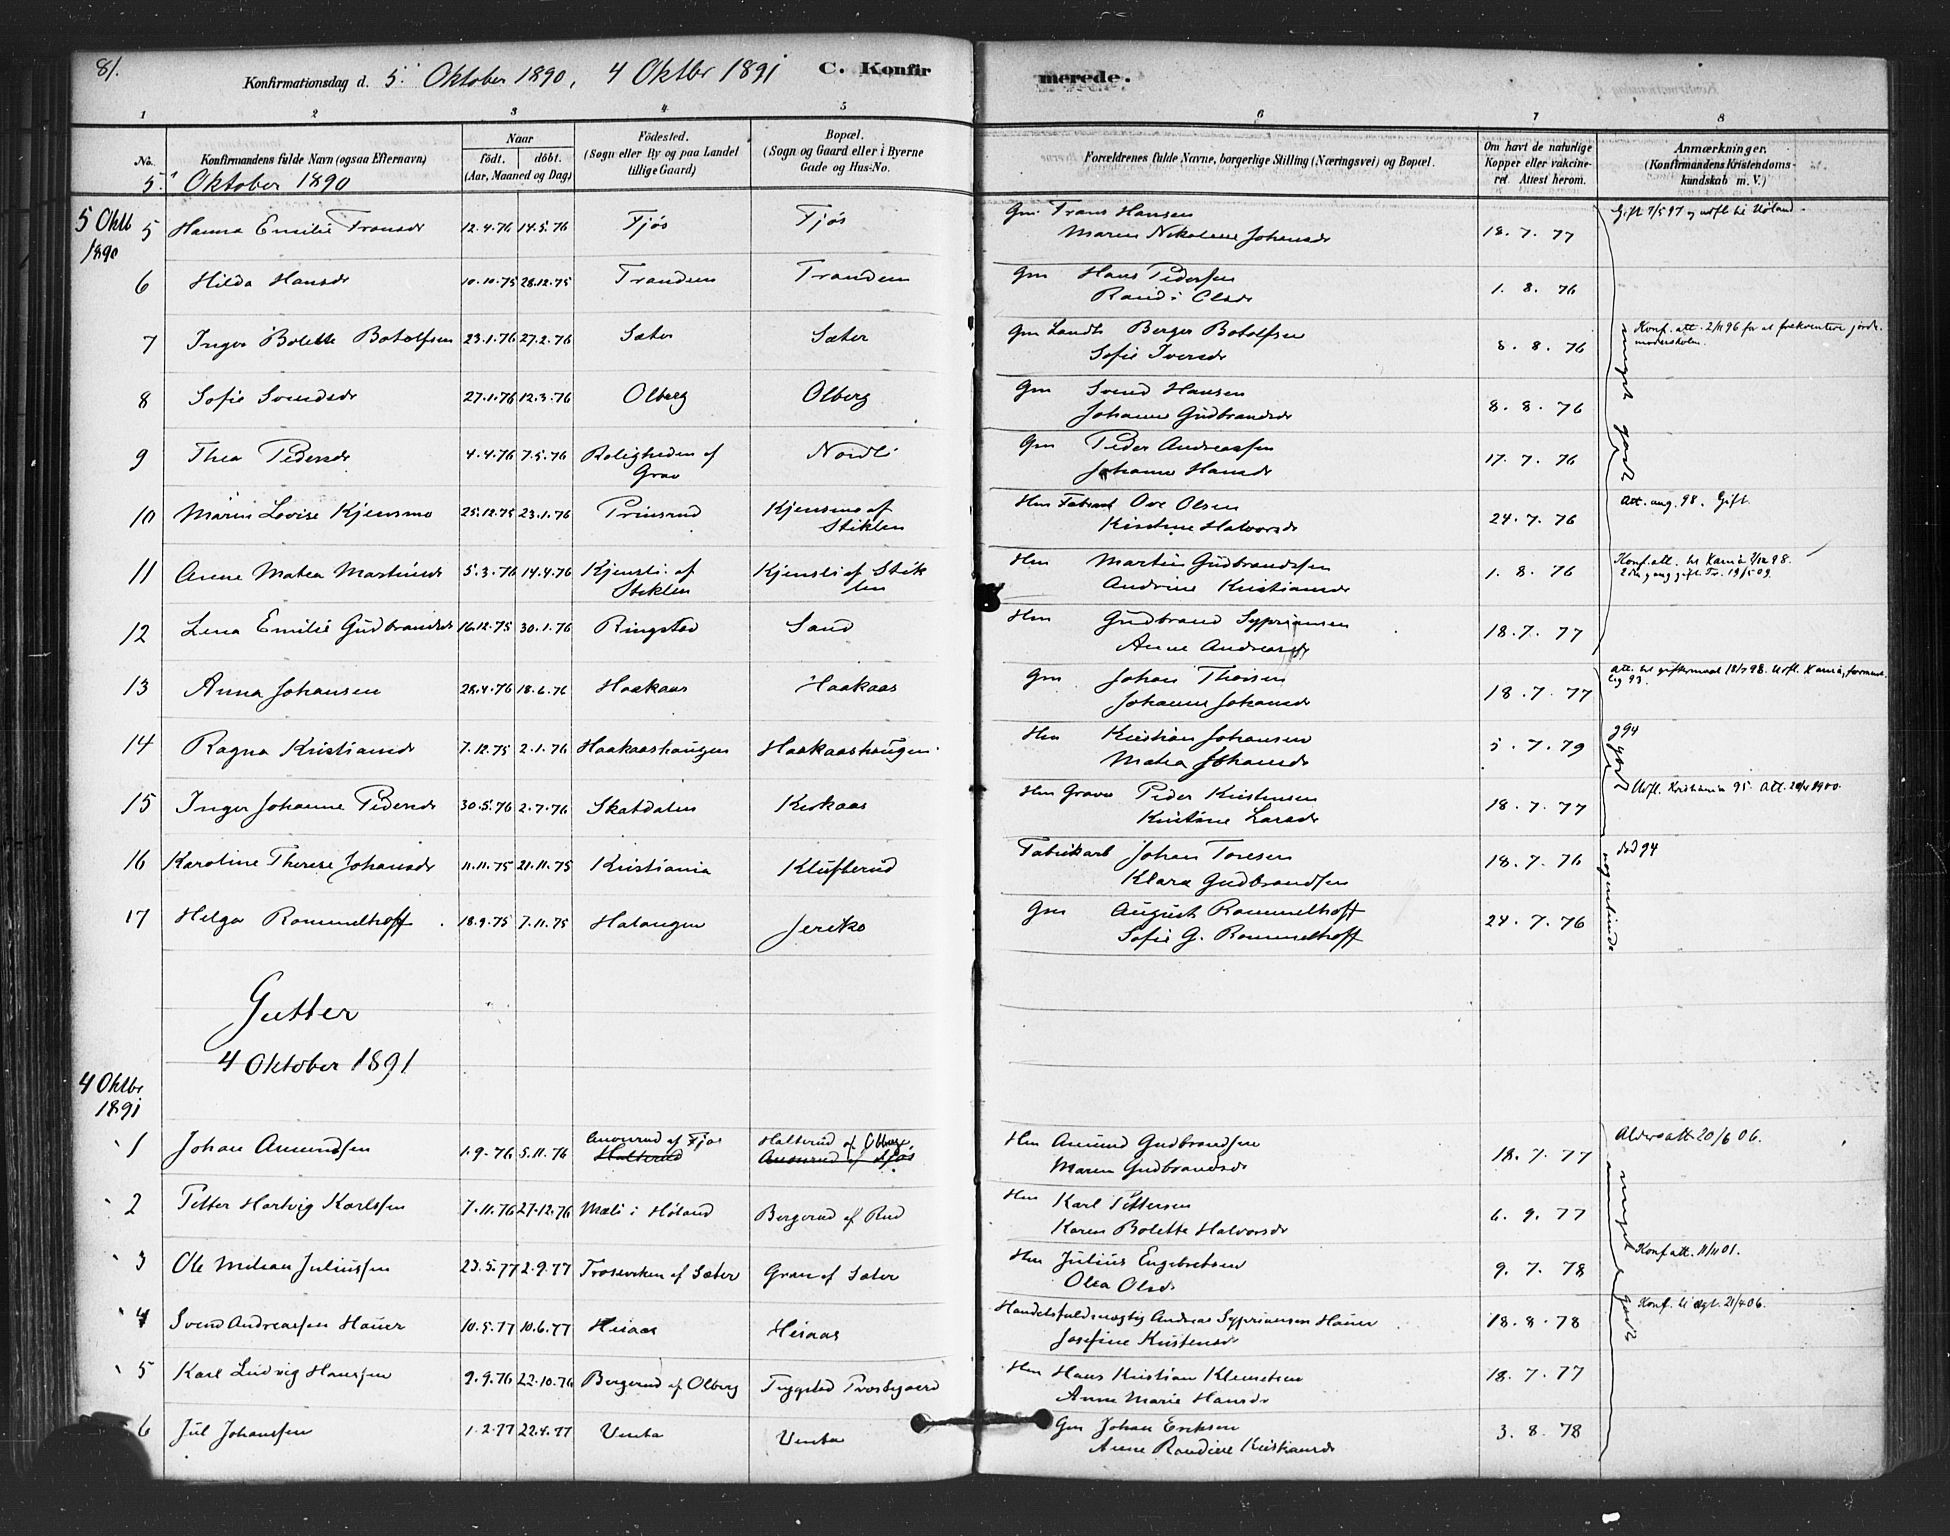 81.
Konfirmationsdag d. 5. Oktober 1890, 4 Oktbr 1891 C. Konfirmerede.
1 2 3 4 5 6 7 8
No. Konfirmandens fulde Navn (ogsaa Efternavn) Naar födt. döbt. (Aar, Maaned og Dag) Födested. (Sogn eller By og paa Landet tillige Gaard) Bopæl. (Sogn og Gaard eller i Byerne Gade og Hus-No. Forældrenes fulde Navne, borgerlige Stilling (Næringsvei) og Bopæl. Om havt de naturlige Kopper eller vakcineret. Attest herom. Anmærkninger. (Konfirmandens Kristendomskundskab m. V.)
5. Oktober 1890
5 Oktb 1890
5 Hanna Emilie Fransdr 12.4.76 14.5.76 Fjøs Fjøs Gm. Frans Hansen
Maren Nikoline Johansdr 18.7.77 Gift 7/5 97 og udfl. til Høland.
6 Hilda Hansdr 10.10.75 28.12.75 Trandem Trandem Gm Hans Pedersen
Randi Olsdr 1.8.76
7 Inger Bolette Botolfsen 23.1.76 27.2.76 Sæter Sæter Gm Landh. Berger Botolfsen
Sofie Iversdr 8.8.76 Konf. att. 2/11 96 for at frekventere jordmoderskolen.
8 Sofie Svendsdr 27.1.76 12.3.76 Olberg Olberg Gm Svend Hansen
Johanne Gudbrandsdr 8.8.76 meget godt
9 Thea Pedersdr 4.4.76 7.5.76 Roligheden af Grav Nordli Gm Peder Andreassen
Johanne Hansdr 17.7.76
10 Maren Lovise Kjensmo 25.12.75 23.1.76 Prinsrud Kjensmo af Stiklen Hm Fabrarb Ove Olsen
Kristine Halvorsdr 24.7.76 Att. aug. 98. Gift
11 Anne Matea Martinsdr 5.3.76 14.4.76 Kjensli af Stiklen Kjensli af Stiklen Hm Martin Gudbrandsen
Andrine Kristiansdr 1.8.76 Konf. att. til Xania 98.
2den gang gift Tr. 19/5 09.
12 Lena Emilie Gudbrandsdr 16.12.75 30.1.76 Ringstad Sand Hm Gudbrand Sypriansen
Anne Andreasdr 18.7.77
13 Anna Johansen 28.4.76 18.6.76 Haakaas Haakaas Gm Johan Thorsen
Johanne Johansdr 18.7.77
14 Ragna Kristiansdr 7.12.75 2.1.76 Haakaashaugen Haakaashaugen. Hm Kristian Johansen
Matea Johansdr 5.7.79 godt
15 Inger Johanne Pedersdr 30.5.76 2.7.76 Skatdalen Kirkaas Hm Grave Peder Kristensen
Kristine Larsdr 18.7.77 Utfl. Kristiania 95. Att.
16 Karoline Therese Johansdr 11.11.75 21.11.75 Kristiania Klufterud Fabrikarb Johan Toresen
Klara Gudbrandsen 18.7.76 død 94 nogenlunde
17 Helga Rommelhoff 18.9.75 7.11.75 Halangen Jeriko Gm August Rommelhoff
Sofie G. Rommelhoff 24.7.76
Gutter
4 Oktober 1891
4 Oktbr. 1891
1 Johan Amundsen 1.9.76 5.11.76 Anonrud af Fjøs
Halterud Halterud af
Anonrud af Fjøs Hm Amund Gudbrandsen
Maren Gudbrandsdr 18.7.77 Aldersatt. 20/6 06.
2 Petter Hartvig Karlsen 7.11.76 27.12.76 Mæli i Høland Bergerud af Rud Hm Karl Pettersen
Karen Bolette Halvorsdr 6.9.77 meget godt
3 Ole Milian Juliussen 23.5.77 2.9.77 Trosviken af Sæter Gran af Sæter Hm Julius Engebretsen
Olea Olsdr 9.7.78 Konf. att. 11/11 01.
4 Svend Andreassen Hauer 10.5.77 10.6.77 Heiaas Heiaas Handelsfuldmægtig Andreas Sypriansen Hauer
Josefine Kristensdr 18.8.78 Konf. til ægt. 21/4 06.
5 Karl Ludvig Hanssen 9.9.76 22.10.76 Bergerud af Olberg Tryggstad Trosbygaerd Hm Hans Kristian Klemetsen
Anne Marie Hansdr 18.7.77
6 Jul Johanssen 1.2.77 22.4.77 Venta Venta Gm Johan Eriksen
Anne Randine Kristiansdr 3.8.78